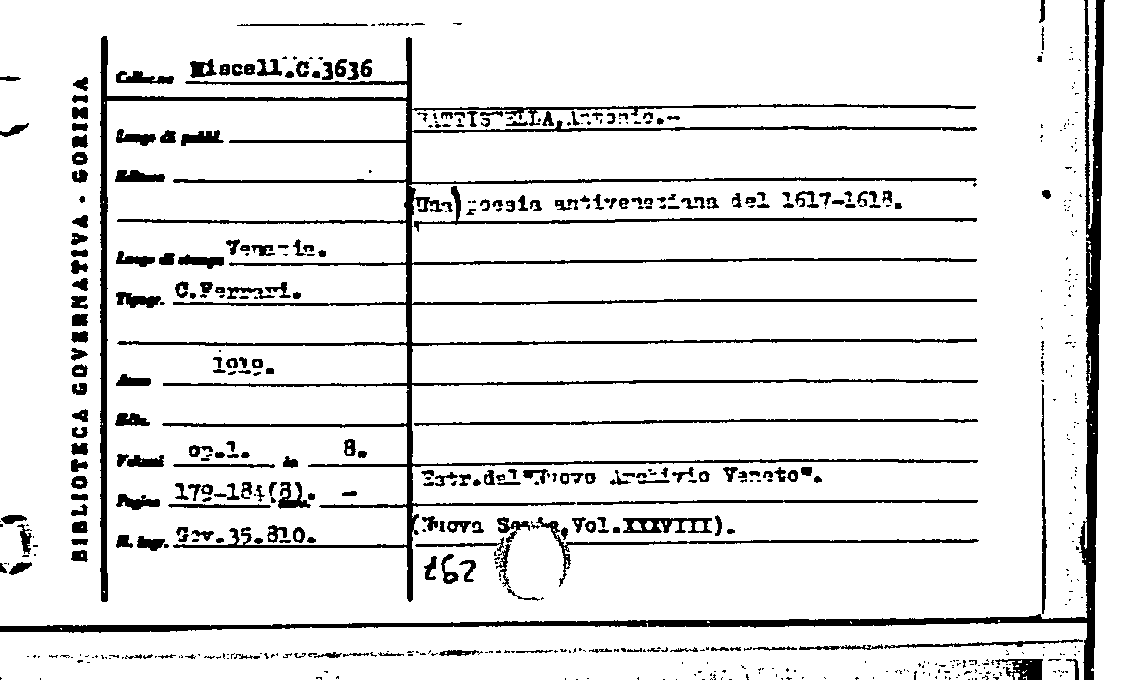 BIBLIOTECA GOVERNATIVA - GORIZIA
Collocne Miscell.C.3636
BATTISTELLA,Antonio.-
Luogo di pubbl.
Editore
(Una) poesia antiveneziana del 1617-1618.
Luogo di stampa Venezia.
Tipogr. C.Ferrari.
Anno 1919.
Ediz.
Volumi op.1. in 8.
Estr.del"Nuovo Archivio Veneto".
Pagine 179-184(8). -
(Nuova Serie,Vol.XXXVIII).
N. ingr. Gov.35.810.